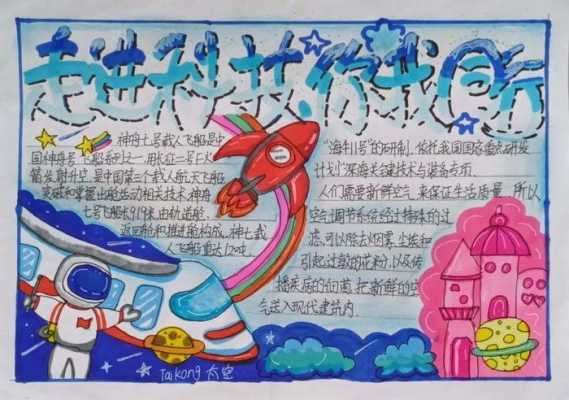 走进科技,你我同行
神舟七号载人飞船是中
国神舟号飞船系列之一,用长征二号F火
箭发射升空,是中国第三个载人航天飞船
突破和掌握出舱活动相关技术,神舟
七号飞船长9.19米,由轨道舱、
返回舱和推进舱构成,神七载
人飞船重达12吨。
"海牛11号"的研制,依托我国国家重点研发
计划"深海关键技术与装备专项.
人们需要新鲜空气,来保证生活质量,所以
空气调节系统经过特殊的过
滤,可以除去烟雾、尘埃和
引起过敏的花粉,以及传
播疾病的细菌,把新鲜的空
气送入现代建筑内.
Taikong 太空